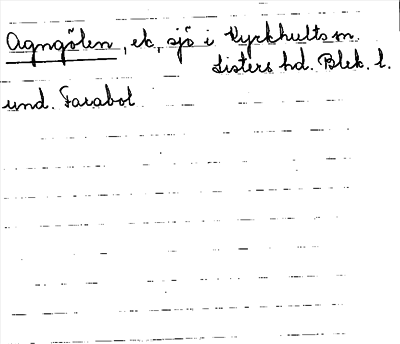 Agngölen, ek, sjö i Kyrkhults sn.
Listers hd. Blek. l.
und. Farabol